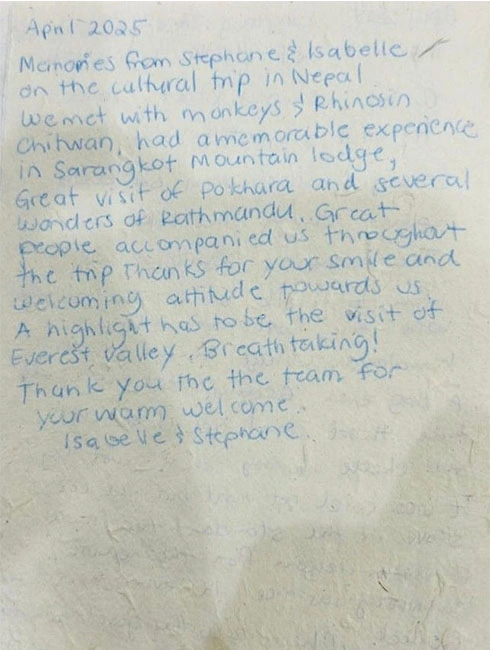 April 2025
Memories from Stephane & Isabelle
on the cultural trip in Nepal
We met with monkeys & Rhinos in
Chitwan, had a memorable experience
in Sarangkot Mountain lodge,
Great visit of Pokhara and several
wonders of Kathmandu. Great
people accompanied us throughout
the trip Thanks for your smile and
welcoming attitude towards us
A highlight has to be the visit of
Everest valley. Breathtaking!
Thank you the the team for
your warm welcome.
Isabelle & Stephane.